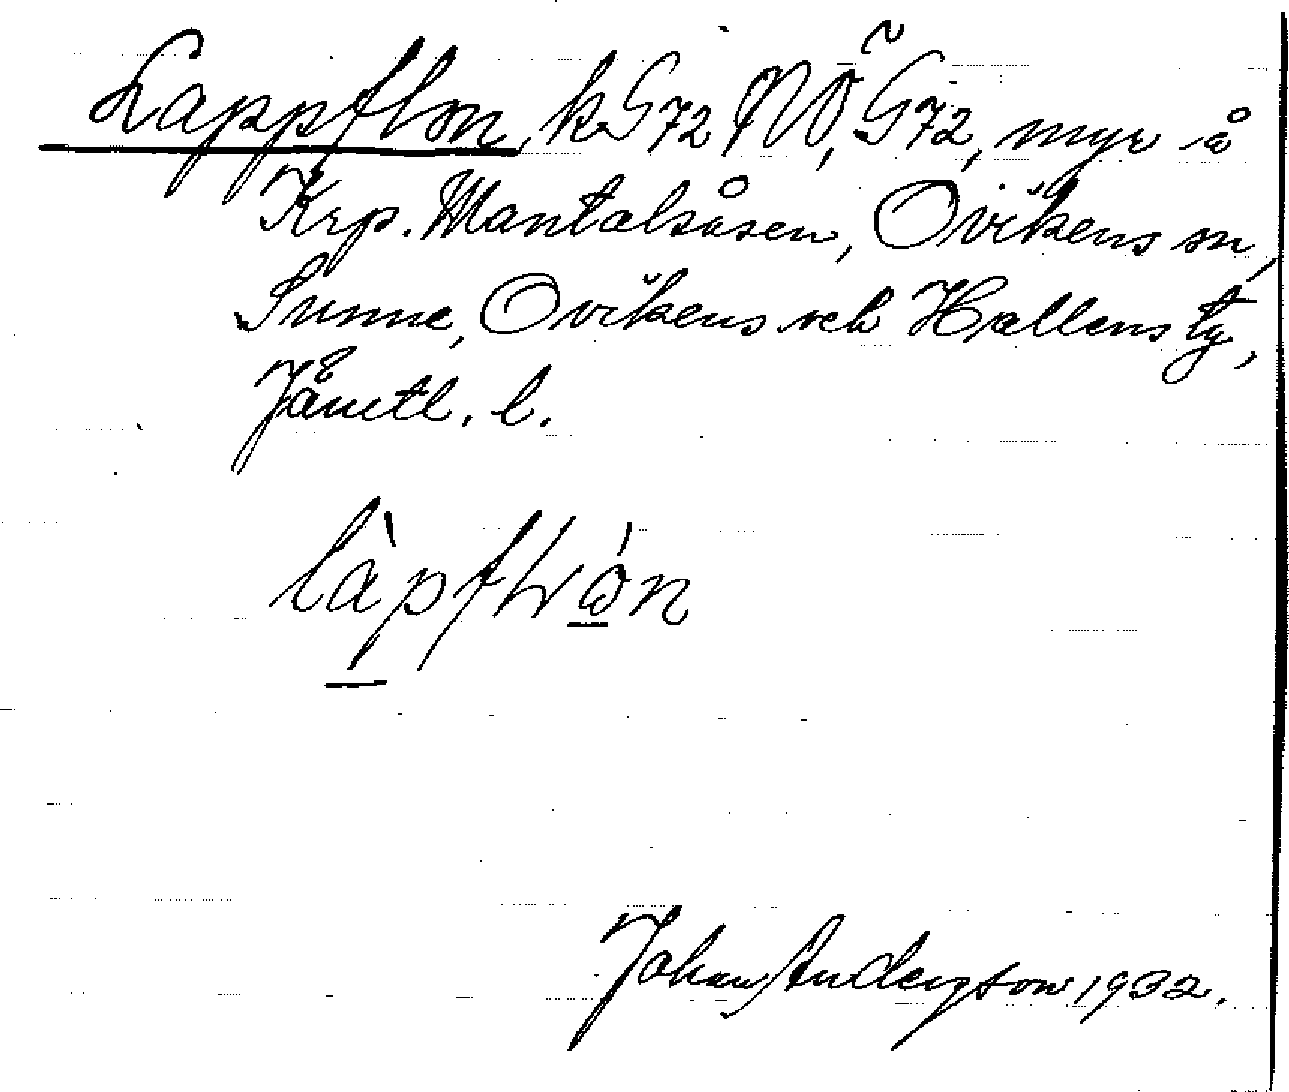 Lappflon, kG72 NV, G72, myr å
Krp. Mantalsåsen, Ovikens sn,
Sunne, Ovikens och Hallens tg,
Jämtl. l.
Johan Anderzson 1932.